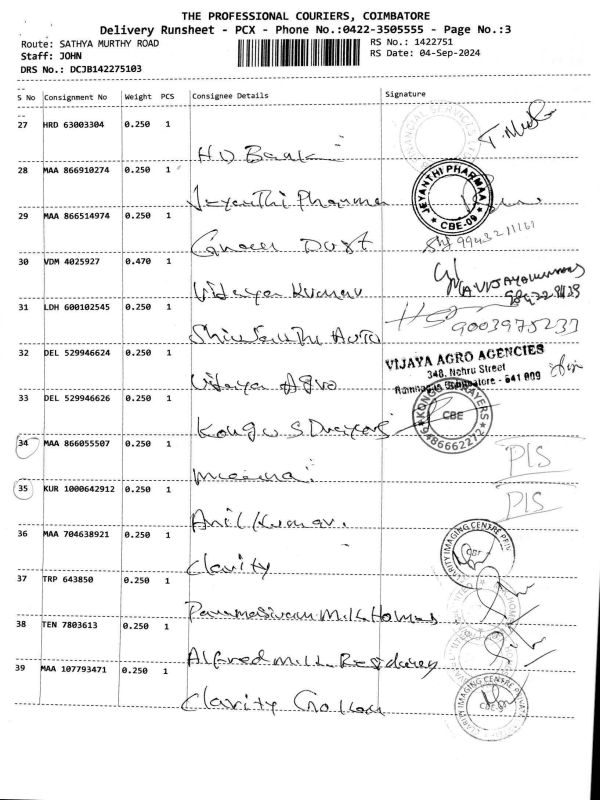 THE PROFESSIONAL COURIERS, COIMBATORE
Delivery Runsheet - PCX - Phone No.:0422-3505555 - Page No.:3
Route: SATHYA MURTHY ROAD
RS No.: 1422751
Staff: JOHN
RS Date: 04-Sep-2024
DRS No.: DCJB142275103
S No Consignment No Weight PCS Consignee Details Signature
27 HRD 63003304 0.250 1
FINANCIAL SERVICES
HD Bank
28 MAA 866910274 0.250 1
Jeyanthi Pharma
JEYANTHI PHARMAA
CBE-09
29 MAA 866514974 0.250 1
Dust
30 VDM 4025927 0.470 1
Vidaya Kumar
A VIJAYAKUMAR
31 LDH 600102545 0.250 1
Auto
9003975237
32 DEL 529946624 0.250 1
Vidaya Agro
VIJAYA AGRO AGENCIES
348, Nehru Street
Coimbatore - 641 009
33 DEL 529946626 0.250 1
Kongu Sprayers
KONGU SPRAYERS
CBE
9486662272
34 MAA 866055507 0.250 1
Meena
PIS
35 KUR 1000642912 0.250 1
Anil Kumar.
PIS
36 MAA 704638921 0.250 1
Clarity
CLARITY IMAGING CENTRE
37 TRP 643850 0.250 1
Paramasivam Milk Homes
38 TEN 7803613 0.250 1
Alfred Milk
39 MAA 107793471 0.250 1
Clarity
CLARITY IMAGING CENTRE